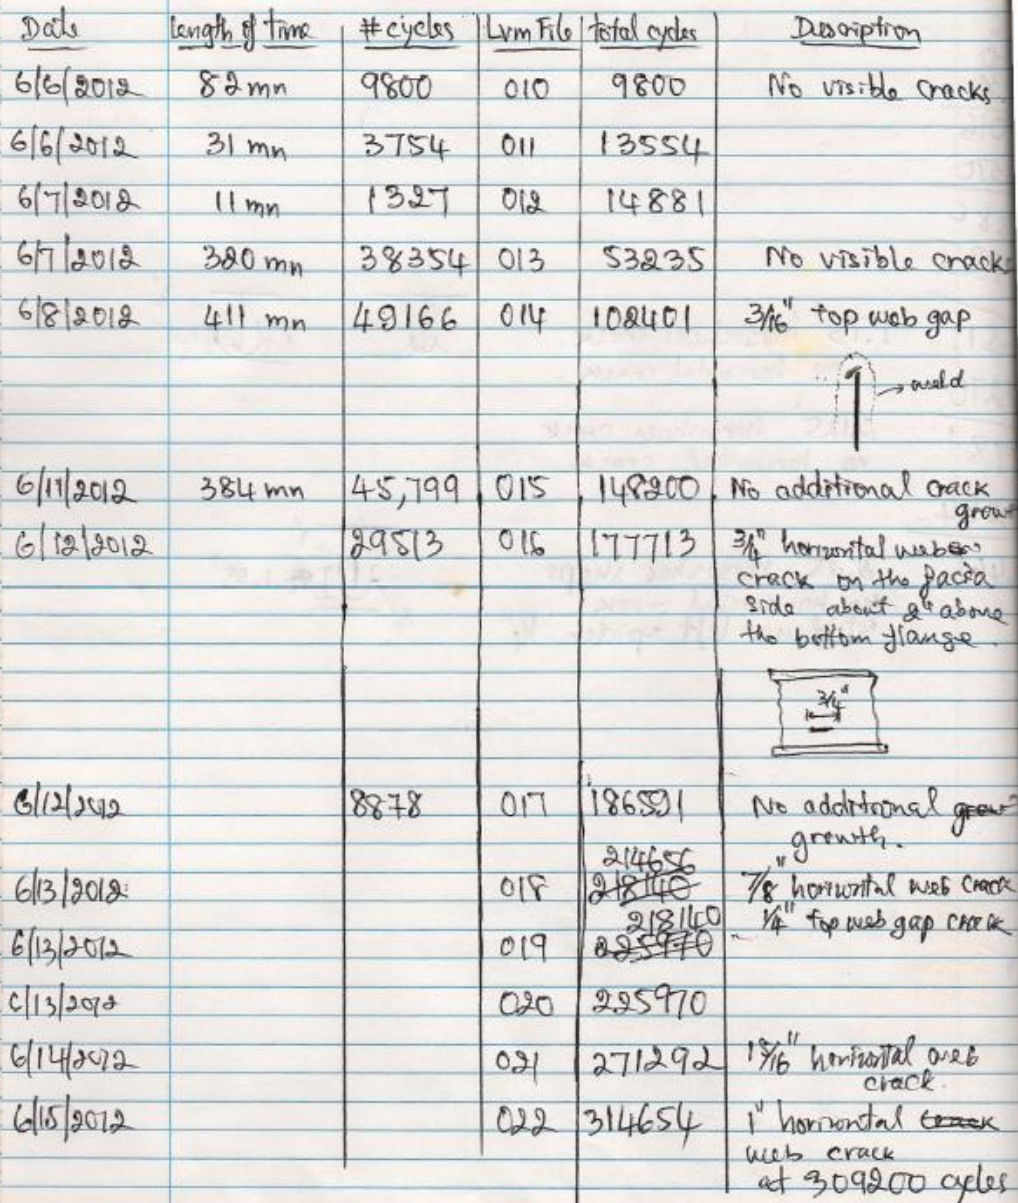 Date length of time # cycles Lvm File total cycles Description
6/6/2012 82 mn 9800 010 9800 No visible cracks
6/6/2012 31 mn 3754 011 13554
6/7/2012 11 mn 1327 012 14881
6/7/2012 320 mn 38354 013 53235 No visible crack
6/8/2012 411 mn 49166 014 102401 3/16" top web gap
weld
6/11/2012 384 mn 45,799 015 148200 No additional crack
grow
6/12/2012 29513 016 177713 3/4" horizontal web
crack on the facia
side about 2" above
the bottom flange.
3/4"
6/12/2012 8878 017 186591 No additional grow
growth.
214656
6/13/2012 018 218140 7/8" horizontal web crack
218140 1/4" top web gap crack
6/13/2012 019 225970
6/13/2012 020 225970
6/14/2012 021 271292 15/16" horizontal web
crack.
6/15/2012 022 314654 1" horizontal crack
web crack
at 309200 cycles